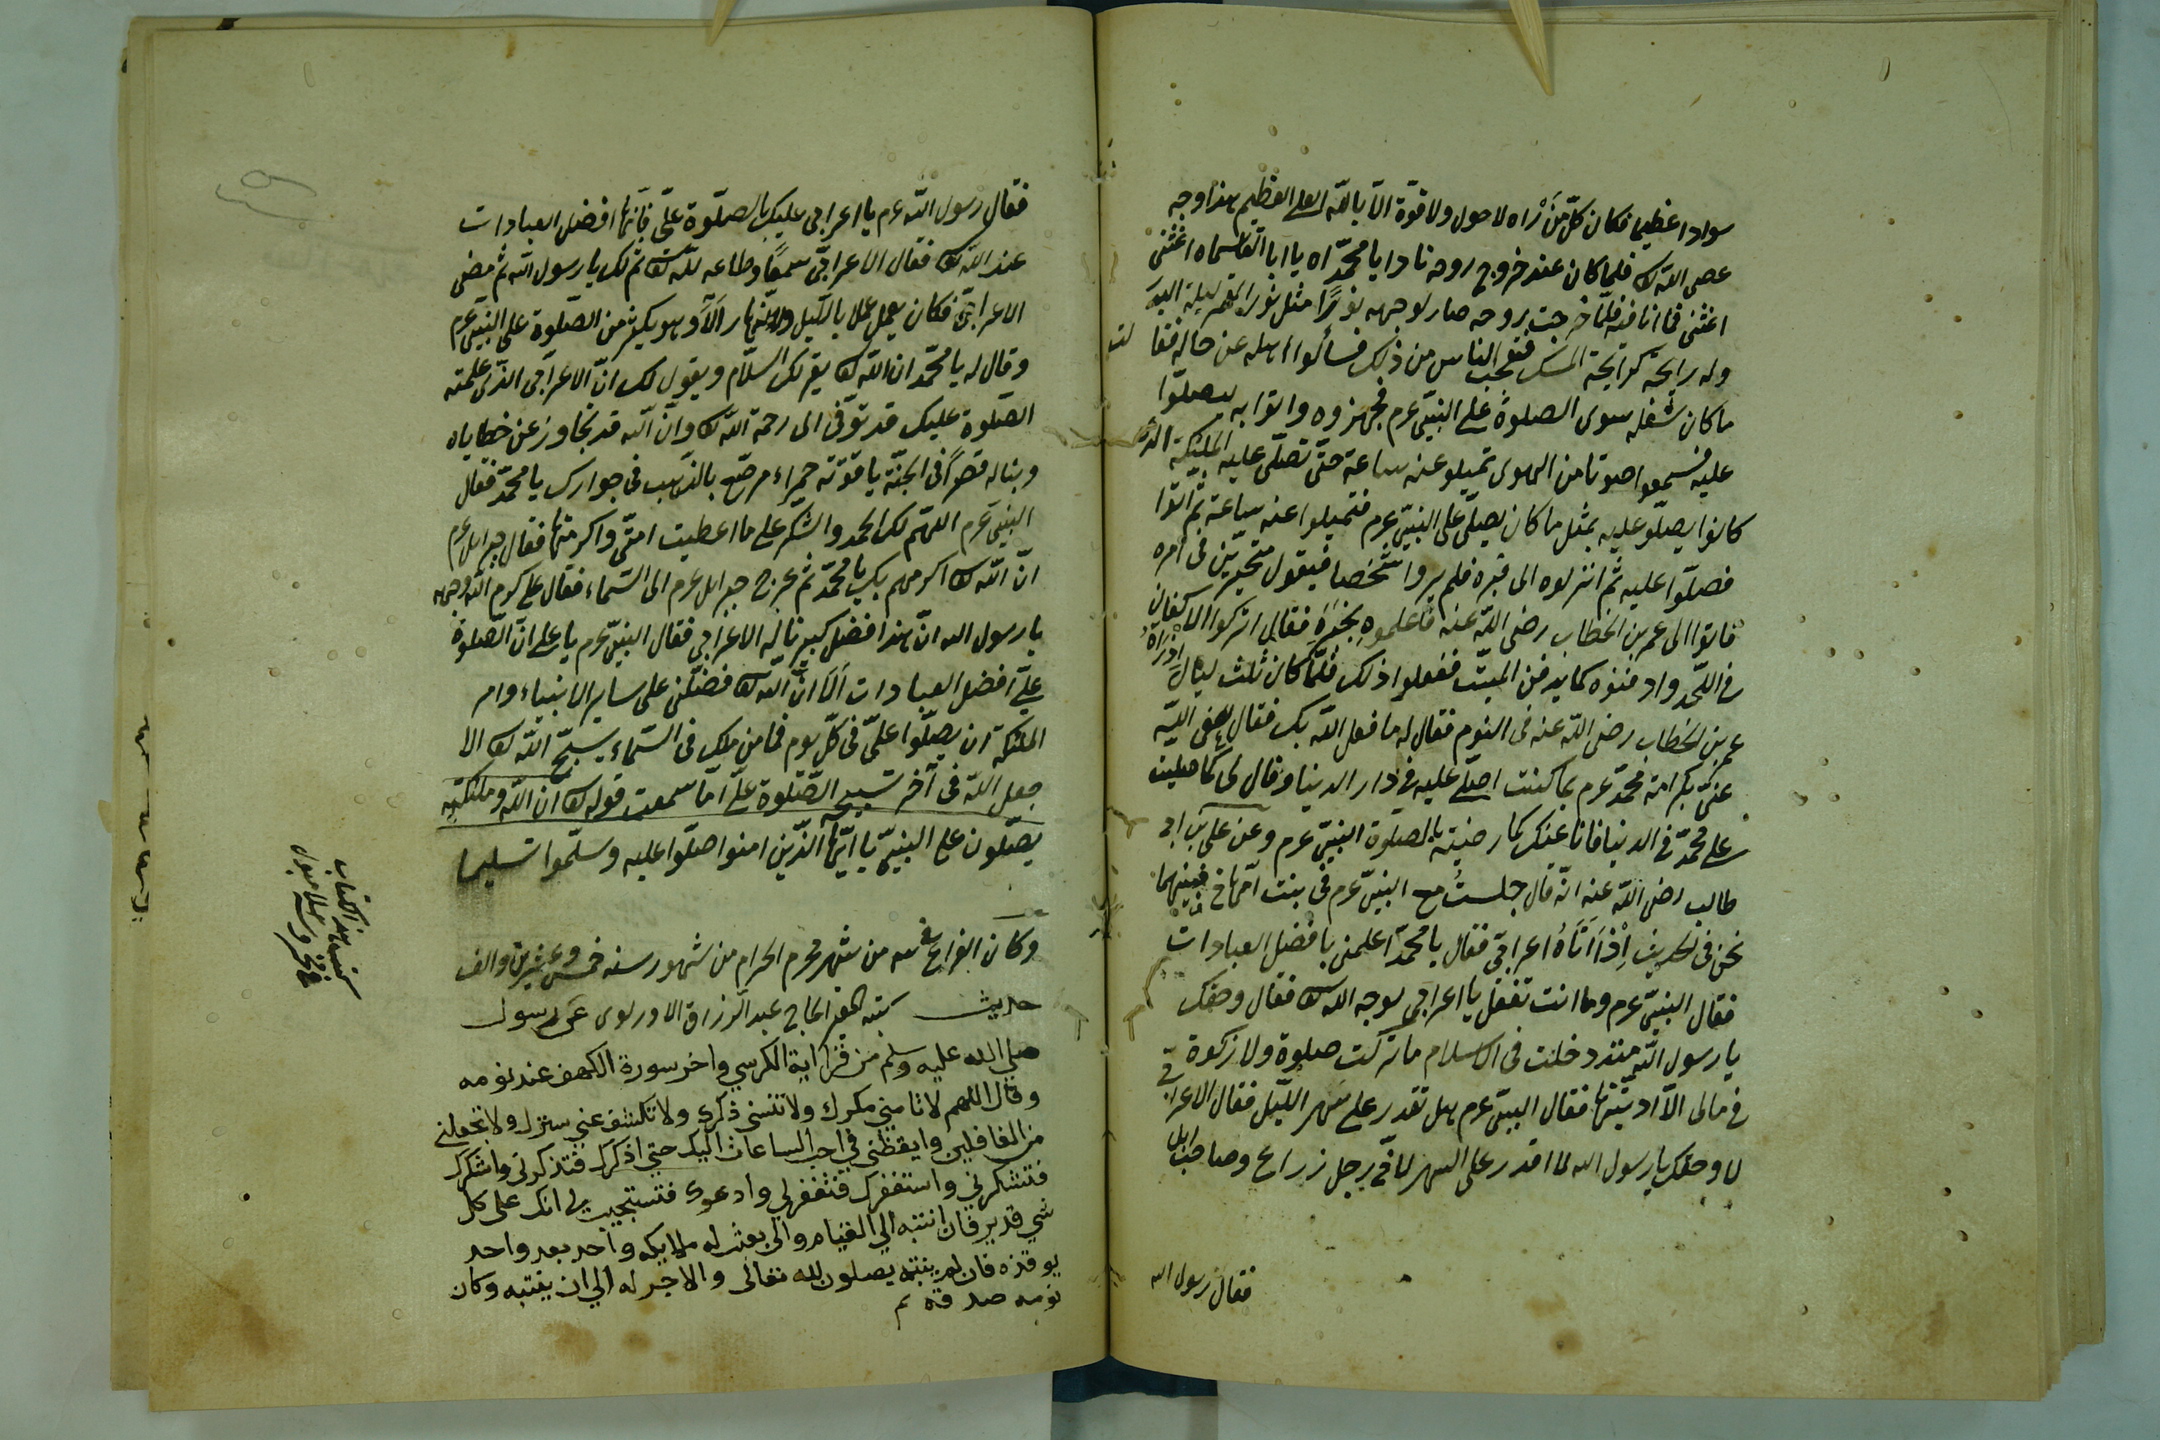 سوادا عظيما فكان كلّ مَنْ رْاه لا حول ولا قوّة الّا بالله العلي العظيم هذا وجه
عصى اللّه تع فلما كان عند خروج روحه نادا يا محمّد اه يا ابا القاسماه اغثنى
اغثنى فلمّا خرجت روحه صار لوجهه نورًا مثل نور القمر ليلة البدر
وله رايحة كرايحة المسك فتعجب الناس من ذلك فسألوا اهله عن حاله فقالت
ما كان شغله سوى الصلوة على النبىّ عرم فجهزوه واتوا به ليصلّوا
عليه فسمعوا صوتا من الهوى تميلو عنه ساعة حتّى تصلّى عليه الملئكة الذى
كانوا يصلّو عليه بمثل ما كان يصلّى على النبىّ عرم فتميلوا عنه ساعة ثم اتوا
فصلّوا عليه ثم انزلوه الى قبره فلم يروا شخصا فيقول متحيّرين فى امره
فاتوا الى عمر بن الخطاب رضى اللّه عنه فاعلموه بخبره فقال اتركوا الاكفان
فى اللّحد وادفنوه كما يدفن الميّت ففعلوا ذلك فلمّا كان ثلث ليال راه
عمر بن الخطاب رضى اللّه عنه فى النوم فقال له ما فعل اللّه بك فقال عفى اللّه
عنّى بكرامة محمّد عرم بما كنت اصلّى عليه فى دار الدنيا وقال لى كما صليت
على محمّد فى الدنيا فانا عنك كما رضيته بالصلوة النبىّ عرم وعن على بن ابى
طالب رضى اللّه عنه انّه قال جلستُ مع النبىّ عرم فى بنت امّهانى فبينهما
نحن فى الحديث اِذْا اَتَاهُ اعرابىّ فقال يا محمّد اعلمنى بافضل العبادات
فقال النبىّ عرم وما انت تفعل يا اعرابى لوجه الله تع فقال وحقك
يا رسول اللّه منذ دخلت فى الاسلام ما تركت صلوة ولا زكوة
فى مالى الّا ادّيتها فقال النبىّ عرم هل تقدر على سهر اللّيل فقال الاعرابى
لا وحقك يا رسول الله لا اقدر على السهر لانى رجل زراع وصاحب ابل
فقال رسول الله
فقال رسول اللّه عرم يا اعرابى عليك بالصلّوة علىّ فانّها افضل العبادات
عند اللّه تع فقال الاعرابىّ سمعًا وطاعه للّه تع ثم لك يا رسول اللّه ثم مضى
الاعرابىّ فكان يعمل عملا بالليل والنّهار الّا وهو يكثر من الصّلوة على النبىّ عرم
وقال له يا محمّد ان اللّه تع يقرئك السلام ويقول لك انّ الاعرابى الذى علمته
الصّلوة عليك قد توّفى الى رحمة اللّه تع وانّ الله قد تجاوز عن خطاياه
وبنا له قصرًا فى الجنّة ياقوتة حمراء مرصّع بالذّهب فى جوارك يا محمّد فقال
النبىّ عرم اللهّم لك الحمد والشكر على ما اعطيت امتى واكرمتها فقال جبرائل عرم
انّ اللّه تع اكرمهم بك يا محمّد ثم عرج جبرائل عرم الى السّماء فقال على كرم اللّه وجهه
يا رسول الله انّ هذا فضل كبير ناله الاعرابى فقال النبىّ عرم يا على انّ الصّلوة
علىّ افضل العبادات اَلَا انّ اللّه تع فضلّنى على ساير الانبياء وامر
الملئكة ان يصلّوا علىّ فى كلّ يوم فما من ملك فى السّماء يسبّح اللّه تع الا
جعل اللّه فى آخر تسبيحه الصّلوة علىّ اما سمعت قوله تع ان اللّه وملئكته
يصلّون على النبىّ يا ايّها الّذين امنوا صلّوا عليه وسلّموا تسليما
وكان الفراغ منه من شهر محرم الحرام من شهور سنه خمس وعشرين والف
حديث كتبه الفقير الحاج عبد الرزاق الاورلوى عن رسول
صلى الله عليه وسلم من قرا اية الكرسي واخر سورة الكهف عند نومه
وقال اللهم لا تامني مكرك ولا تنسني ذكرك ولا تكشف عني سترك ولا تجعلني
من الغافلين وايقظني في احب الساعات اليك حتي اذكرك فتذكرني واشكرك
فتشكرني واستغفرك فتغفرلي وادعوك فتستجيب لي انك على كل
شي قدير فان انتبه الي القيام والى بعث له ملايكه واحد بعد واحد
يوقذه فان لم ينتبه يصلون لله تعالى والاجر له الي ان ينتبه وكان
نومه صدقه تم